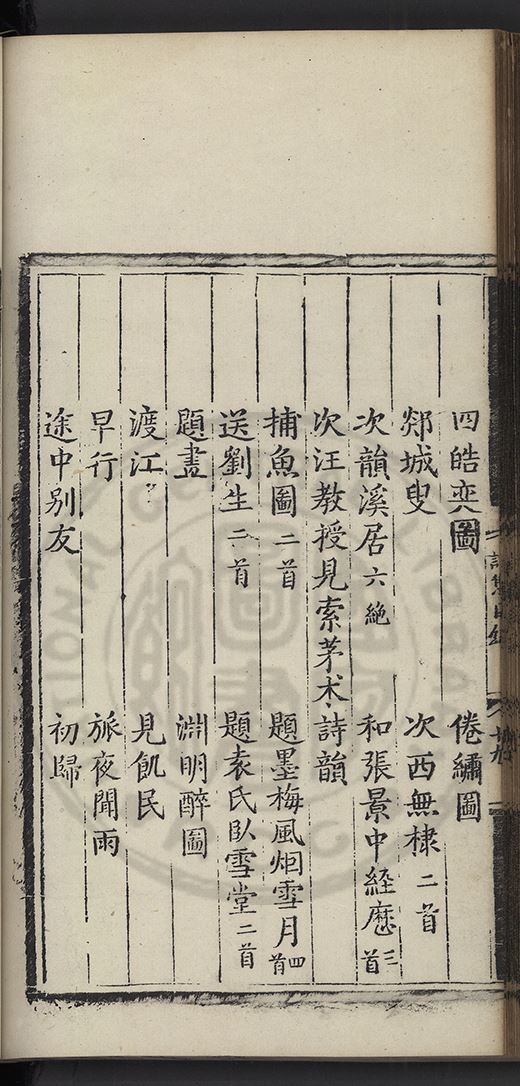 四皓奕圖 倦繡圖
郯城叟 次西無棣二首
次韻溪居六絶 和張景中経歷三首
次汪教授見索茅朮詩韻
捕魚圖二首 題墨梅風烟雪月四首
送劉生二首 題袁氏臥雪堂二首
題畫 淵明醉圖
渡江 見飢民
早行 旅夜聞雨
途中別友 初歸